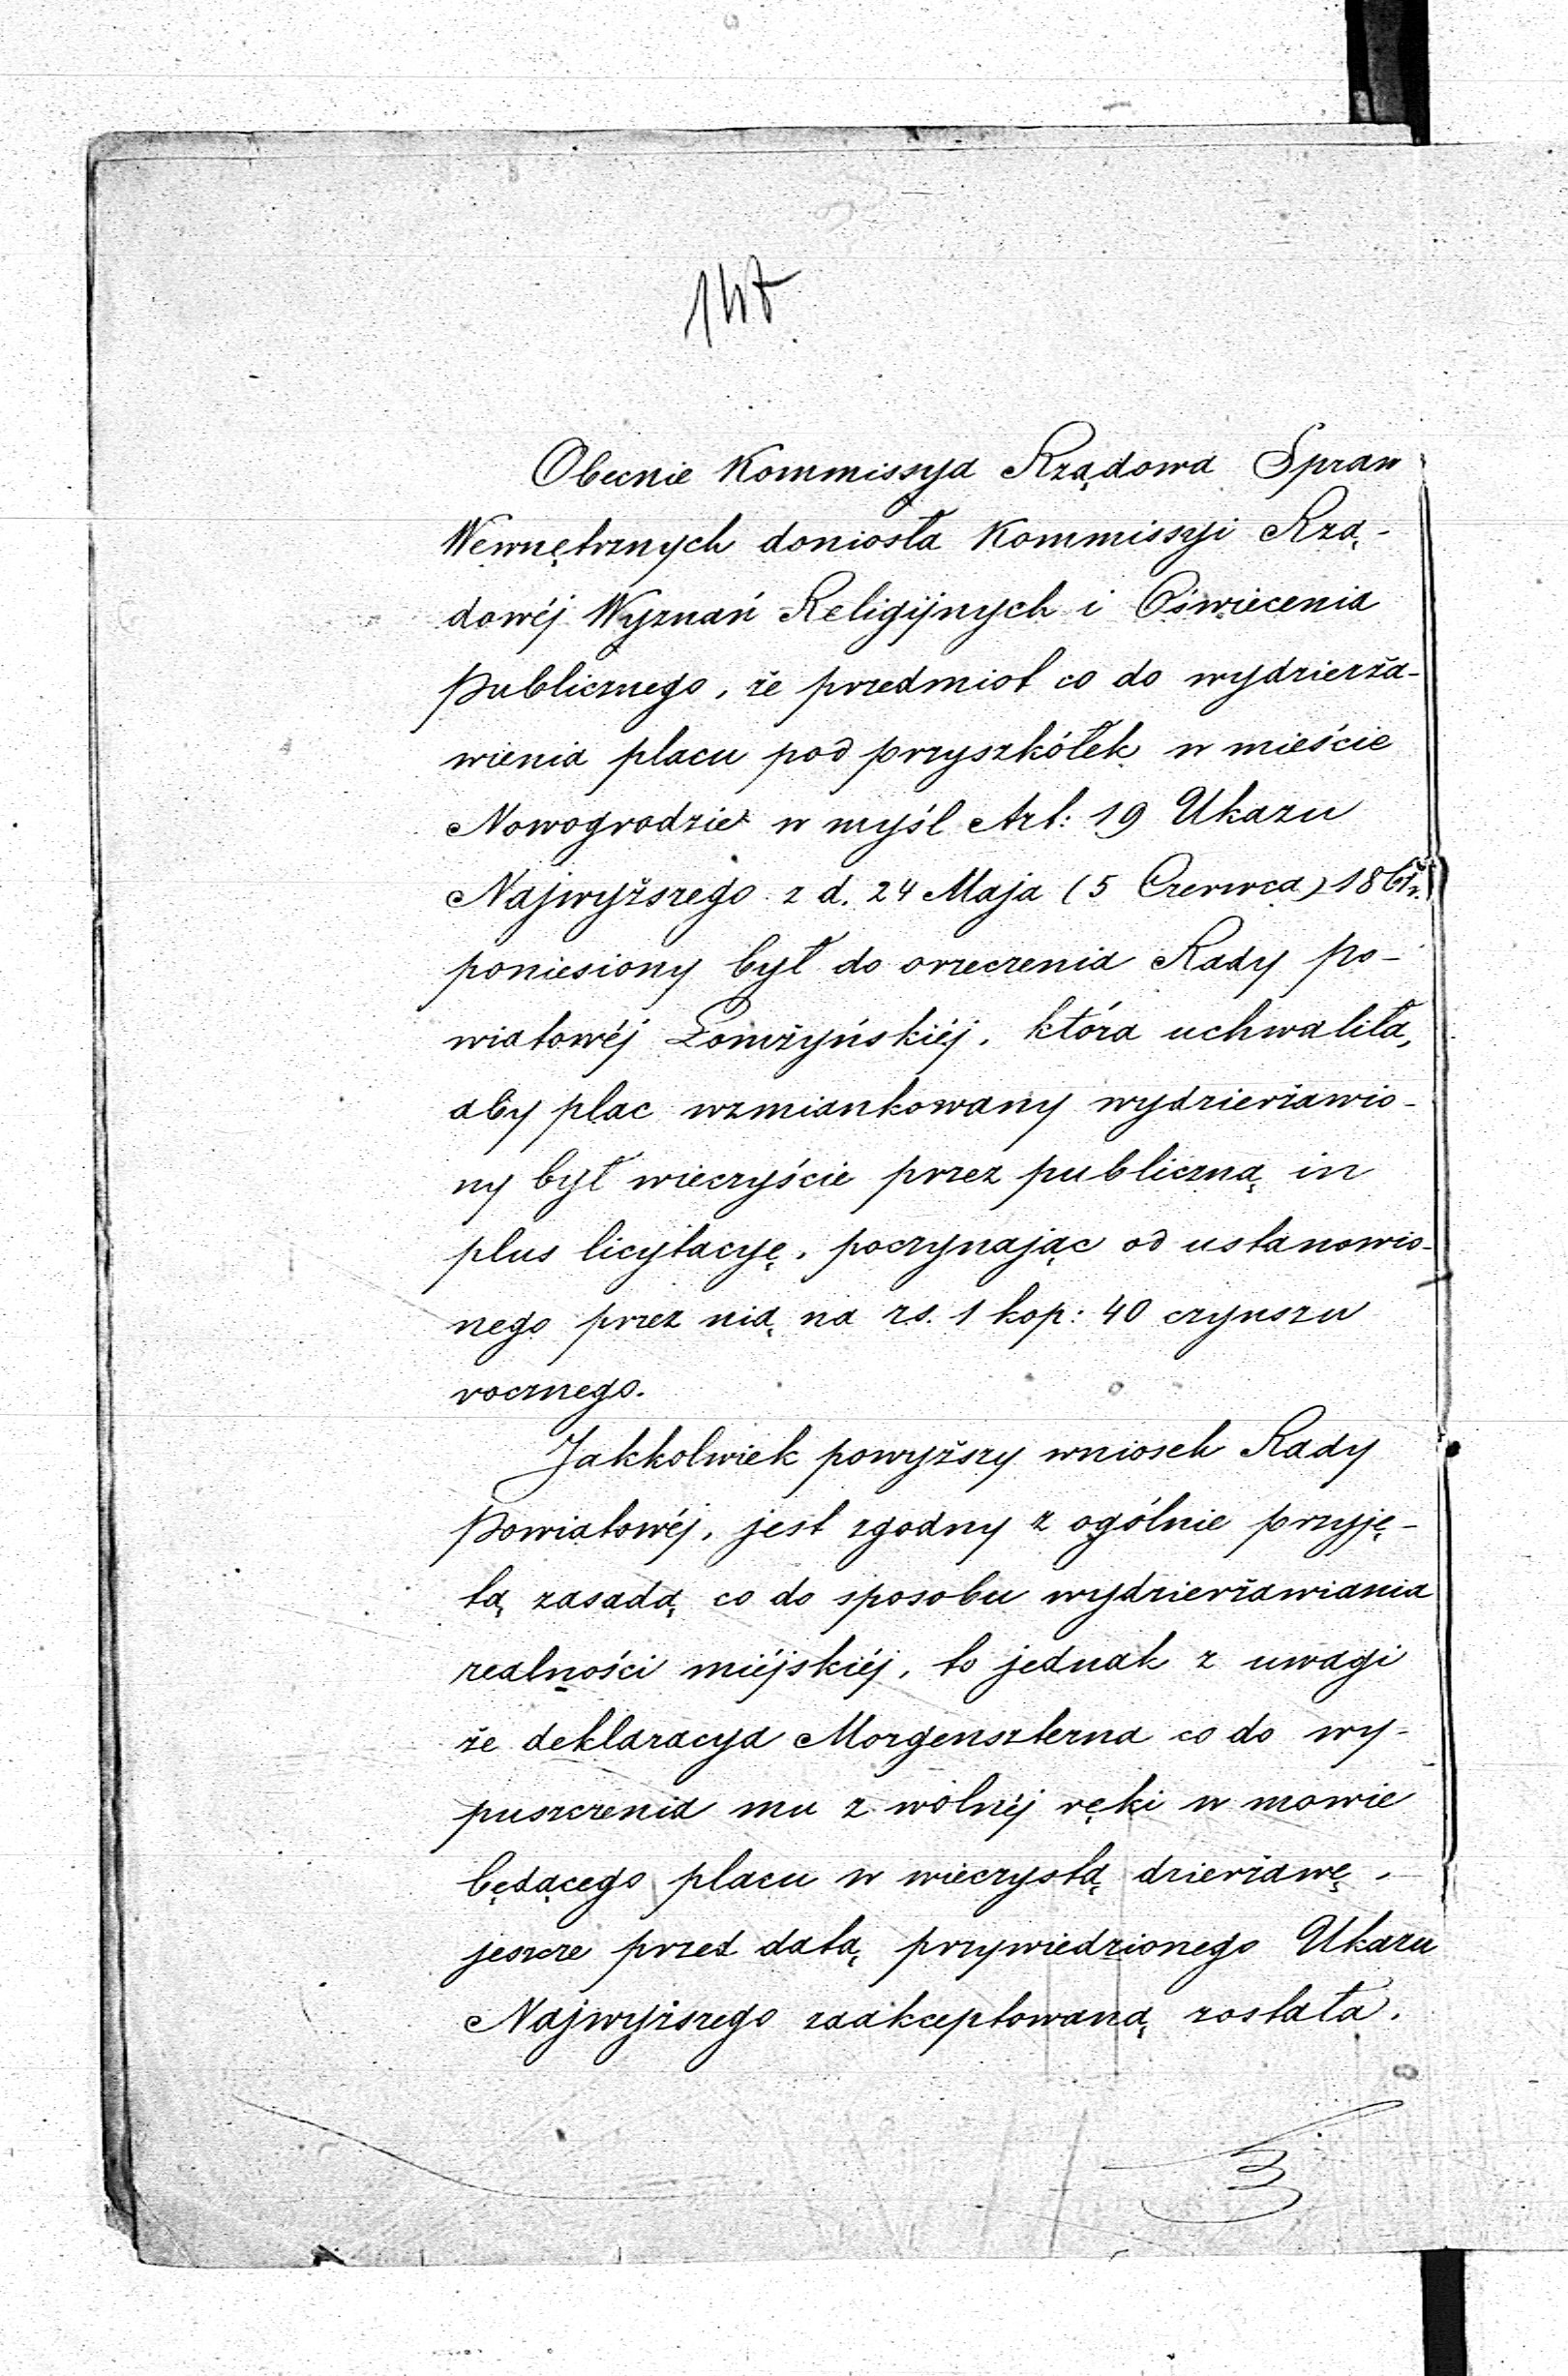 147
Obecnie Kommissya Rządowa Spraw
Wewnętrznych doniosła Kommissyi Rzą-
dowéj Wyznań Religijnych i Oświecenia
Publicznego, że przedmiot co do wydzierża-
wienia placu pod przyszkółek w mieście
Nowogrodzie w myśl Art: 19 Ukazu
Najwyższego z d. 24 Maja (5 Czerwca) 1861 r.
poniesiony był do orzeczenia Rady Po-
wiatowéj Łomżyńskiéj, która uchwaliła,
aby plac wzmiankowany wydzierżawio-
ny był wieczyście przez publiczną in
plus licytacyę, poczynając od ustanowio-
nego przez nią na rs. 1 kop: 40 czynszu
rocznego.
Jakkolwiek powyższy wniosek Rady
Powiatowéj, jest zgodny z ogólnie przyję-
tą zasadą co do sposobu wydzierżawiania
realności miéjskiéj, to jednak z uwagi
że deklaracya Morgenszterna co do wy-
puszczenia mu z wolnéj ręki w mowie
będącego placu w wieczystą dzierżawę,
jeszcze przed datą przywiedzionego Ukazu
Najwyższego zaakceptowaną została,